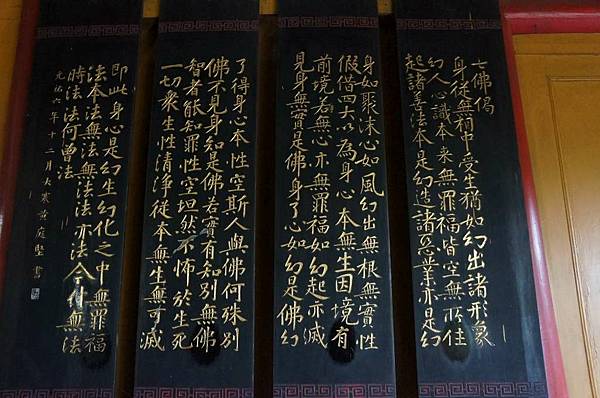 七佛偈
身從無相中受生猶如幻出諸形象
幻人心識本來無罪福皆空無所住
起諸善法本是幻造諸惡業亦是幻
身如聚沫心如風幻出無根無實性
假借四大以為身心本無生因境有
前境若無心亦無罪福如幻起亦滅
見身無實是佛身了心如幻是佛幻
了得身心本性空斯人與佛何殊別
佛不見身知是佛若實有知別無佛
智者能知罪性空坦然不怖於生死
一切衆生性清淨從本無生無可滅
即此身心是幻生幻化之中無罪福
法本法無法無法法亦法今付無法
時法法何曾法
元祐六年十二月大寒黃庭堅書